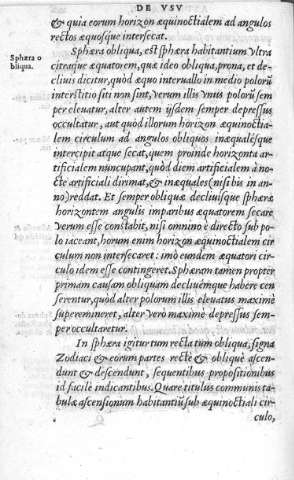 DE VSV
& quia eorum horizon æquinoctialem ad angulos
rectos æquosque intersecat.
Sphæra o
bliqua.
Sphæra obliqua, est sphæra habitantium vltra
citraque æquatorem, quæ ideo obliqua, prona, et de-
cliuis dicitur, quòd æquo interuallo in medio polorū
interstitio siti non sint, verum illis vnus polorū sem
per eleuatur, alter autem ijsdem semper depressus
occultatur, aut quòd illorum horizon æquinoctia-
lem circulum ad angulos obliquos inæqualesque
intercipit atque secat, quem proinde horizonta ar-
tificialem nuncupant, quòd diem artificialem à no-
cte artificiali dirimat, & inæquales (nisi bis in an-
no) reddat. Et semper obliquæ decliuisque sphæræ
horizontem angulis imparibus æquatorem secare
verum esse constabit, nisi omnino è directo sub po-
lo iaceant, horum enim horizon æquinoctialem cir
culum non intersecaret: imò eundem æquatori cir-
culo idem esse contingeret. Sphæram tamen propter
primam causam obliquam decliuemque habere cen
serentur, quòd alter polorum illis eleuatus maximè
superemineret, alter verò maximè depressus sem-
per occultaretur.
In sphæra igitur tum recta tum obliqua, signa
Zodiaci & eorum partes rectè & obliquè ascen-
dunt & descendunt, sequentibus propositionibus
id facilè indicantibus. Quare titulus communis ta-
bulæ ascensionum habitantiū sub æquinoctiali cir-
culo,